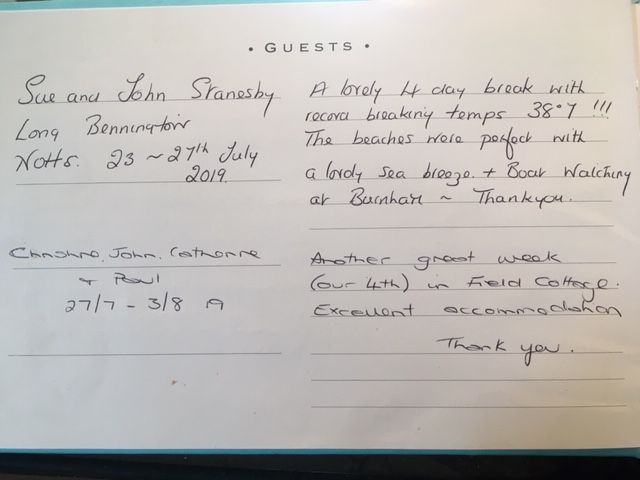 • GUESTS •
Sue and John Stanesby
Long Bennington
Notts. 23 ~ 27th July
2019.
A lovely 4 day break with
record breaking temps 38°7 !!!
The beaches were perfect with
a lovely sea breeze. + Boat Watching
at Burnham ~ Thankyou.
Christine, John, Catherine
+ Paul
27/7 - 3/8 19
Another great week
(our 4th) in Field Cottage.
Excellent accommodation
Thank you.